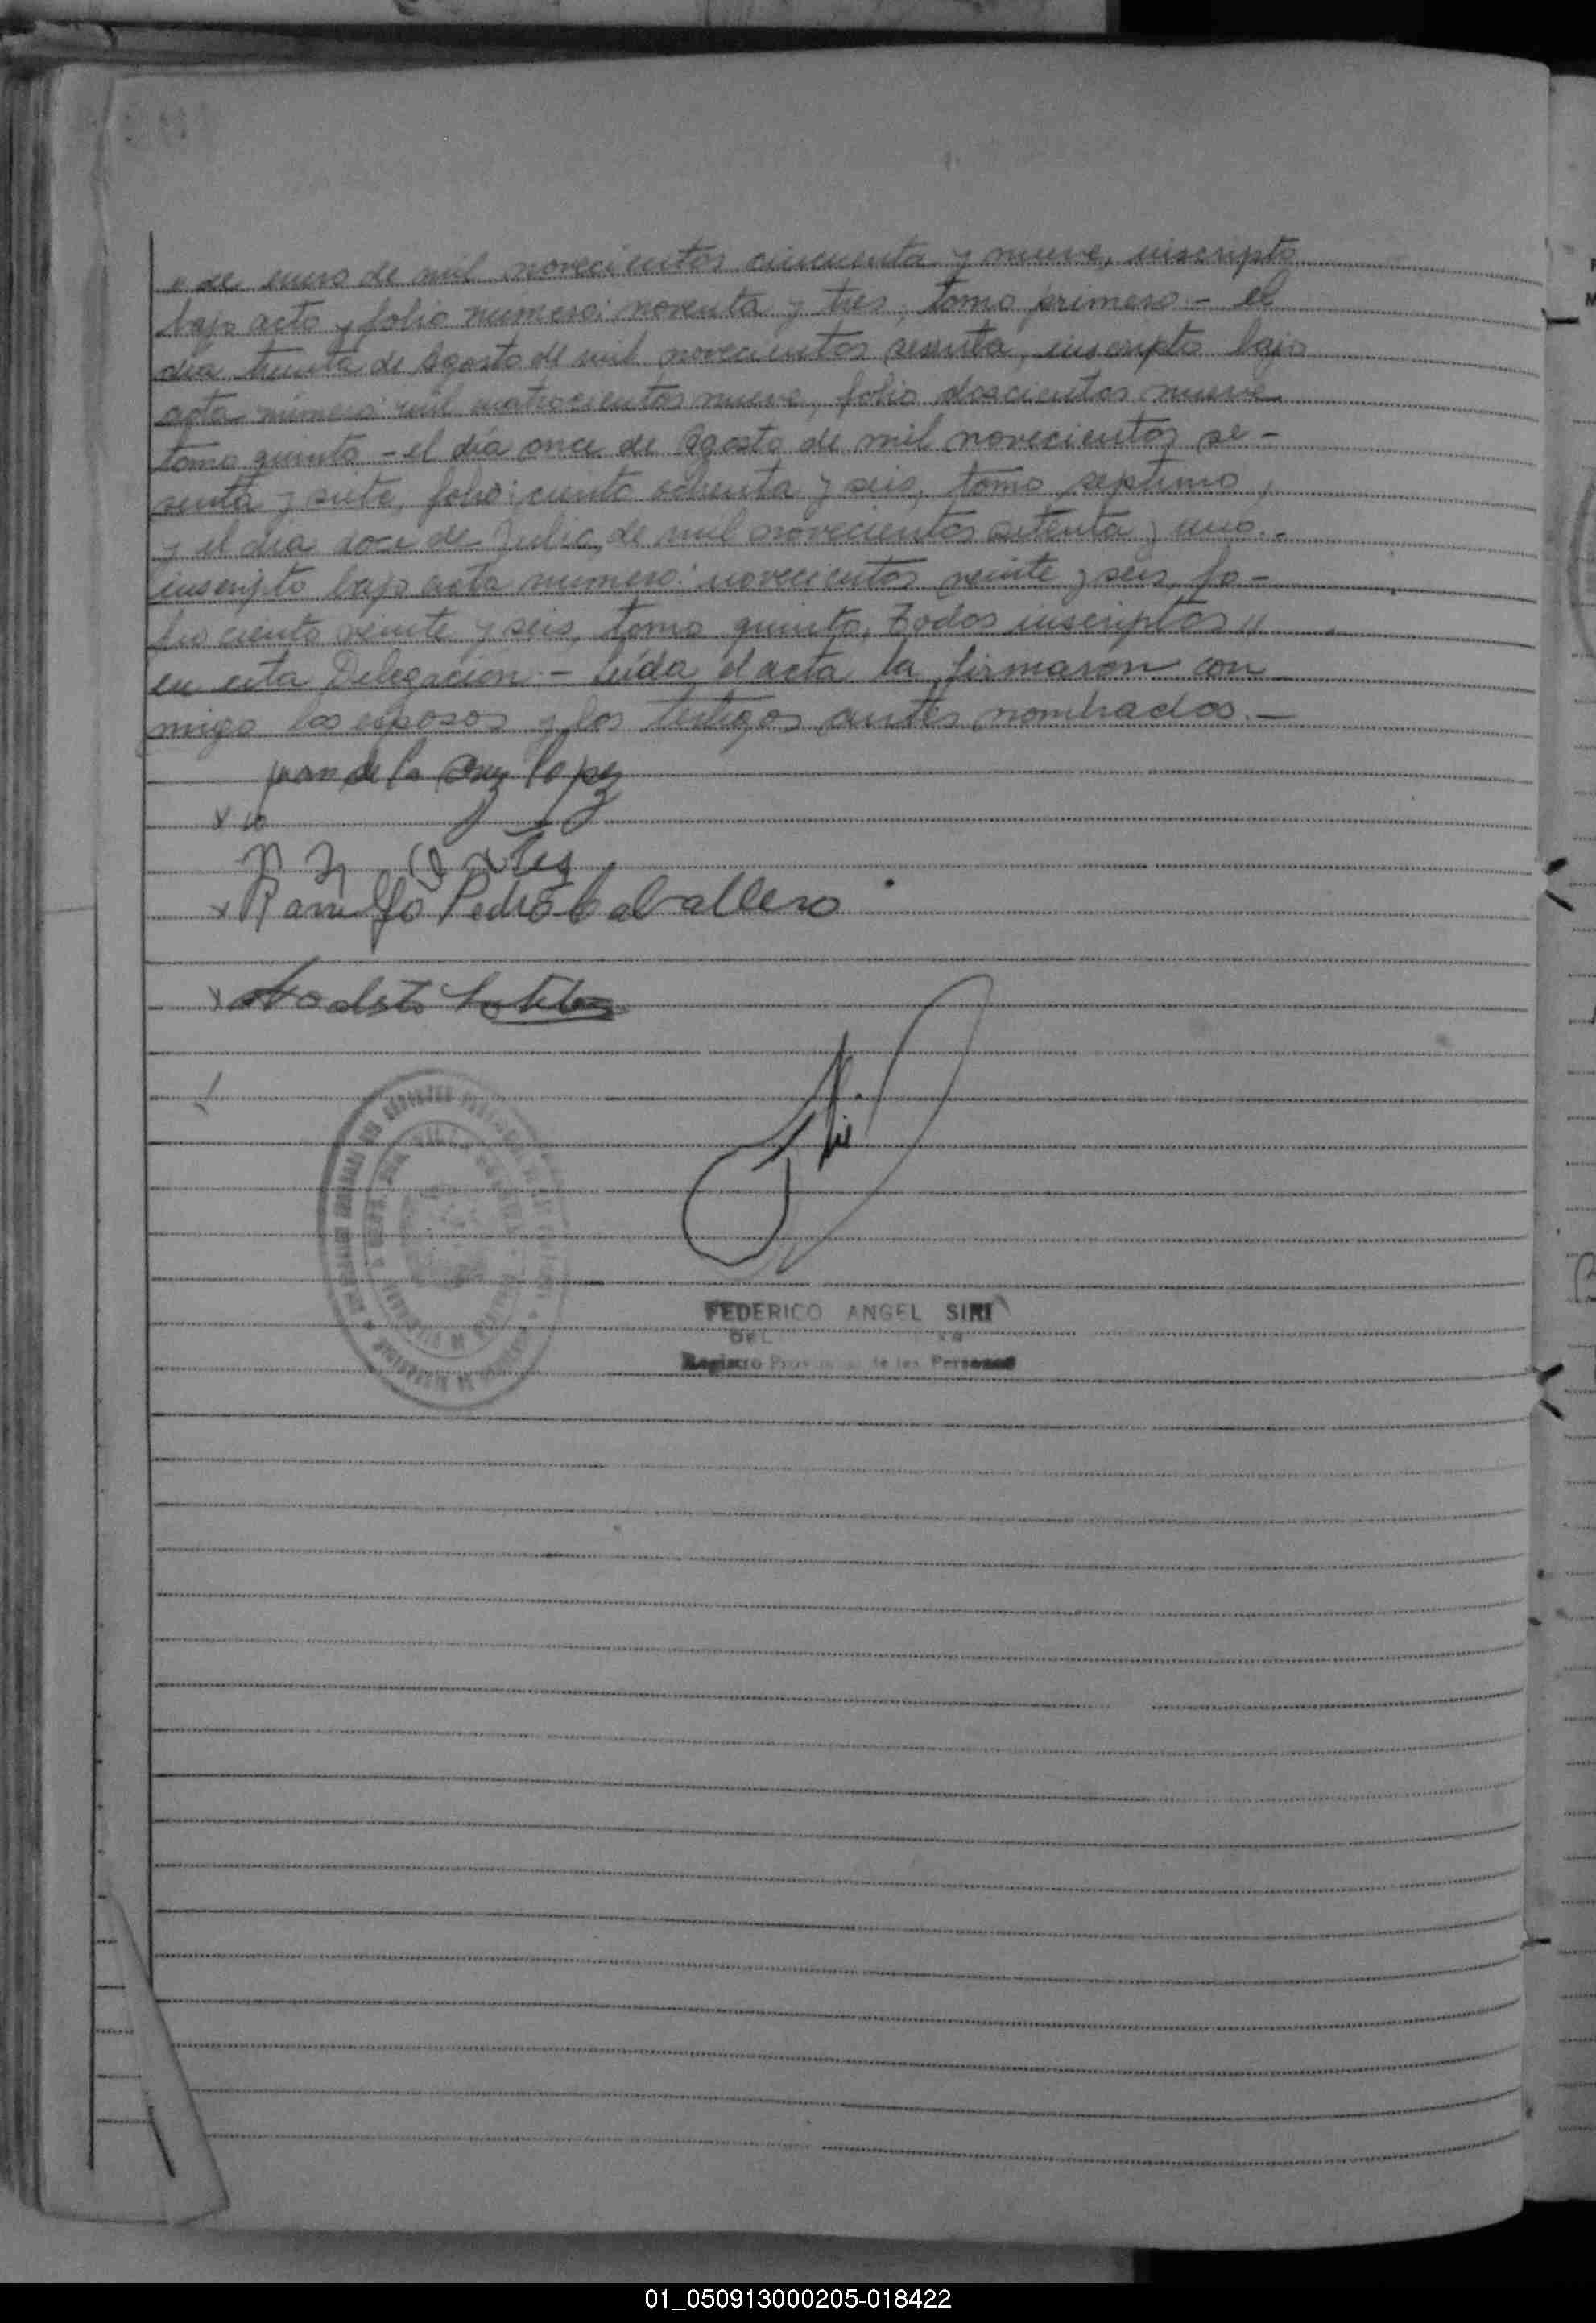 " de enero de mil novecientos cincuenta y nueve, inscripto
bajo acta y folio número: noventa y tres, tomo primero - el
día treinta de Agosto de mil novecientos sesenta, inscripto bajo
acta número: mil cuatrocientos nueve, folio doscientos nueve
tomo quinto - el día once de Agosto de mil novecientos se-
senta y siete, folio: ciento ochenta y seis, tomo septimo,
y el día doce de Julio, de mil novecientos setenta y uno..
inscripto bajo acta número: novecientos veinte y seis, fo-
lio ciento veinte y seis, tomo quinto, Todos inscriptos "
en esta Delegación - Leída el acta la firmaron con
migo los esposos y los testigos antes nombrados. -
juan de la Cruz lopez
x
x Ramulfo Pedro Caballero
x
FEDERICO ANGEL SIRI
DEL
Registro Provincial de las Personas
01_050913000205-018422